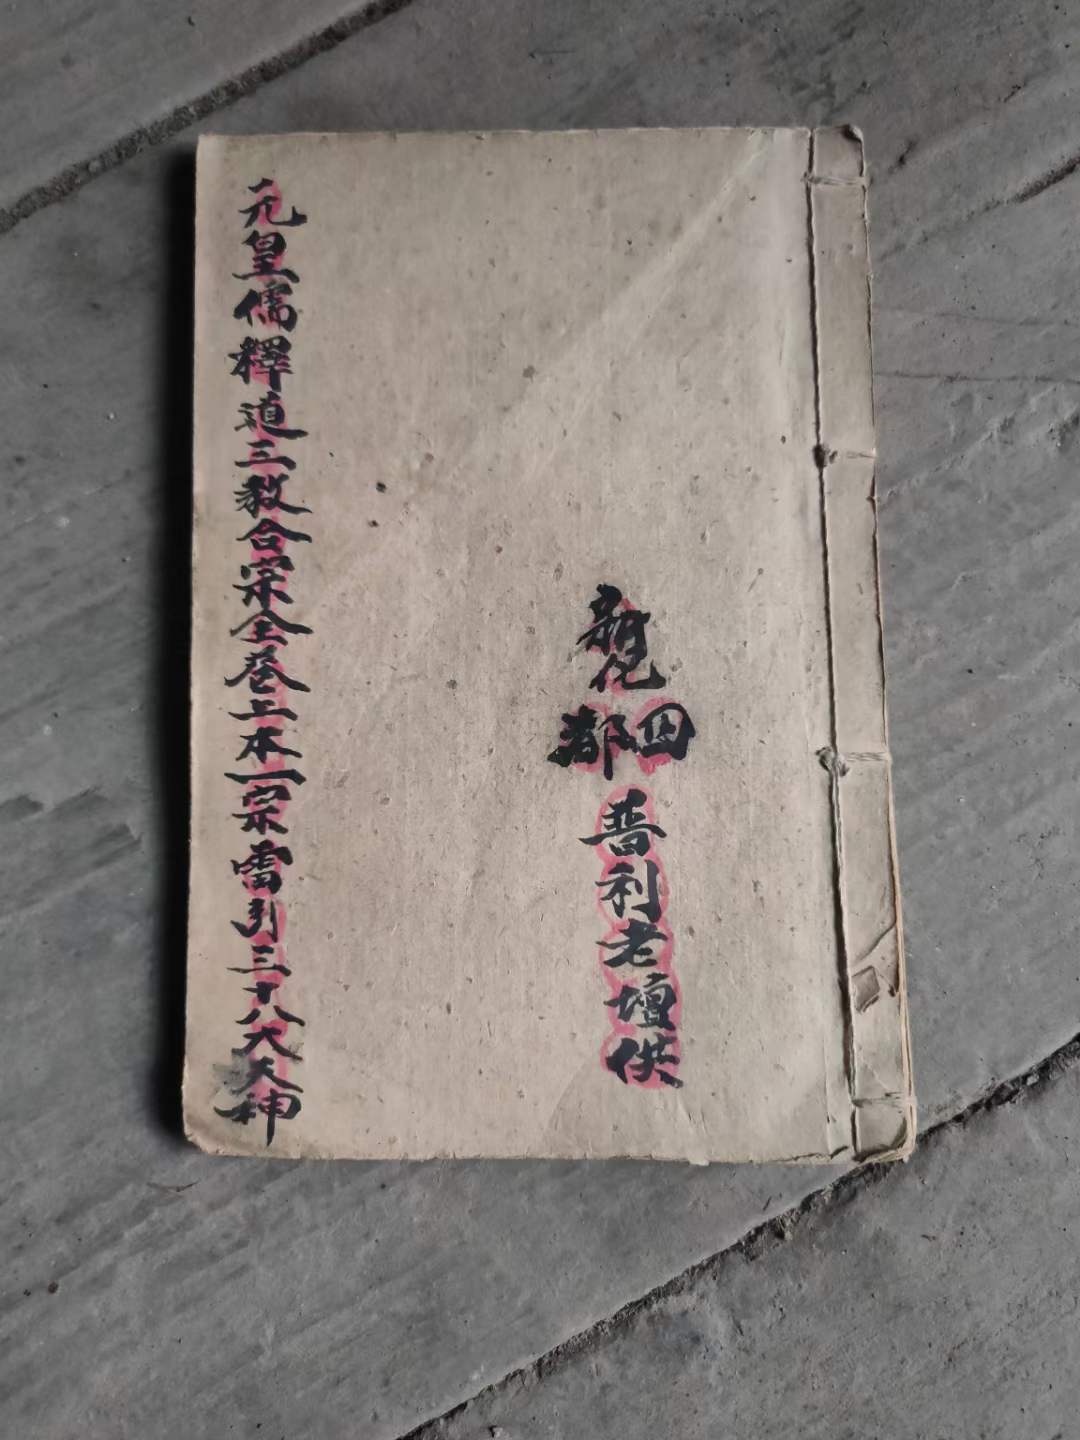 新化
四都
普利老壇供
元皇儒釋道三教合宗全卷上本一宗雷引三十八大天神